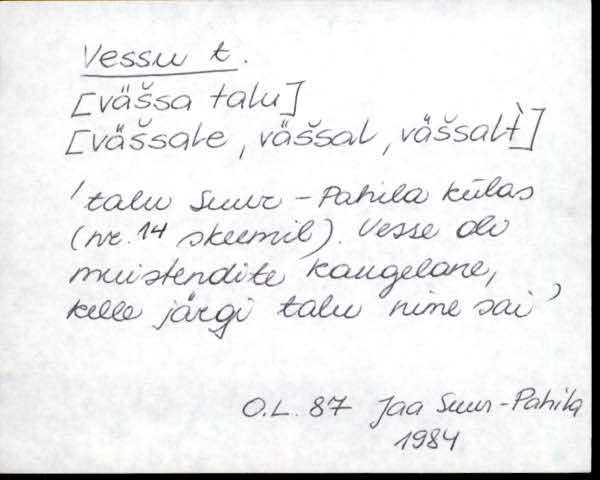 Vessu t.
[väšsa talu]
[väšsale, väšsal, väšsalt̀]
'talu Suur-Pahila külas
(nr. 14 skeemil). Vesse oli
muistendite kangelane,
kelle järgi talu nime sai'
O.L. 87 Jaa Suur-Pahila
1984